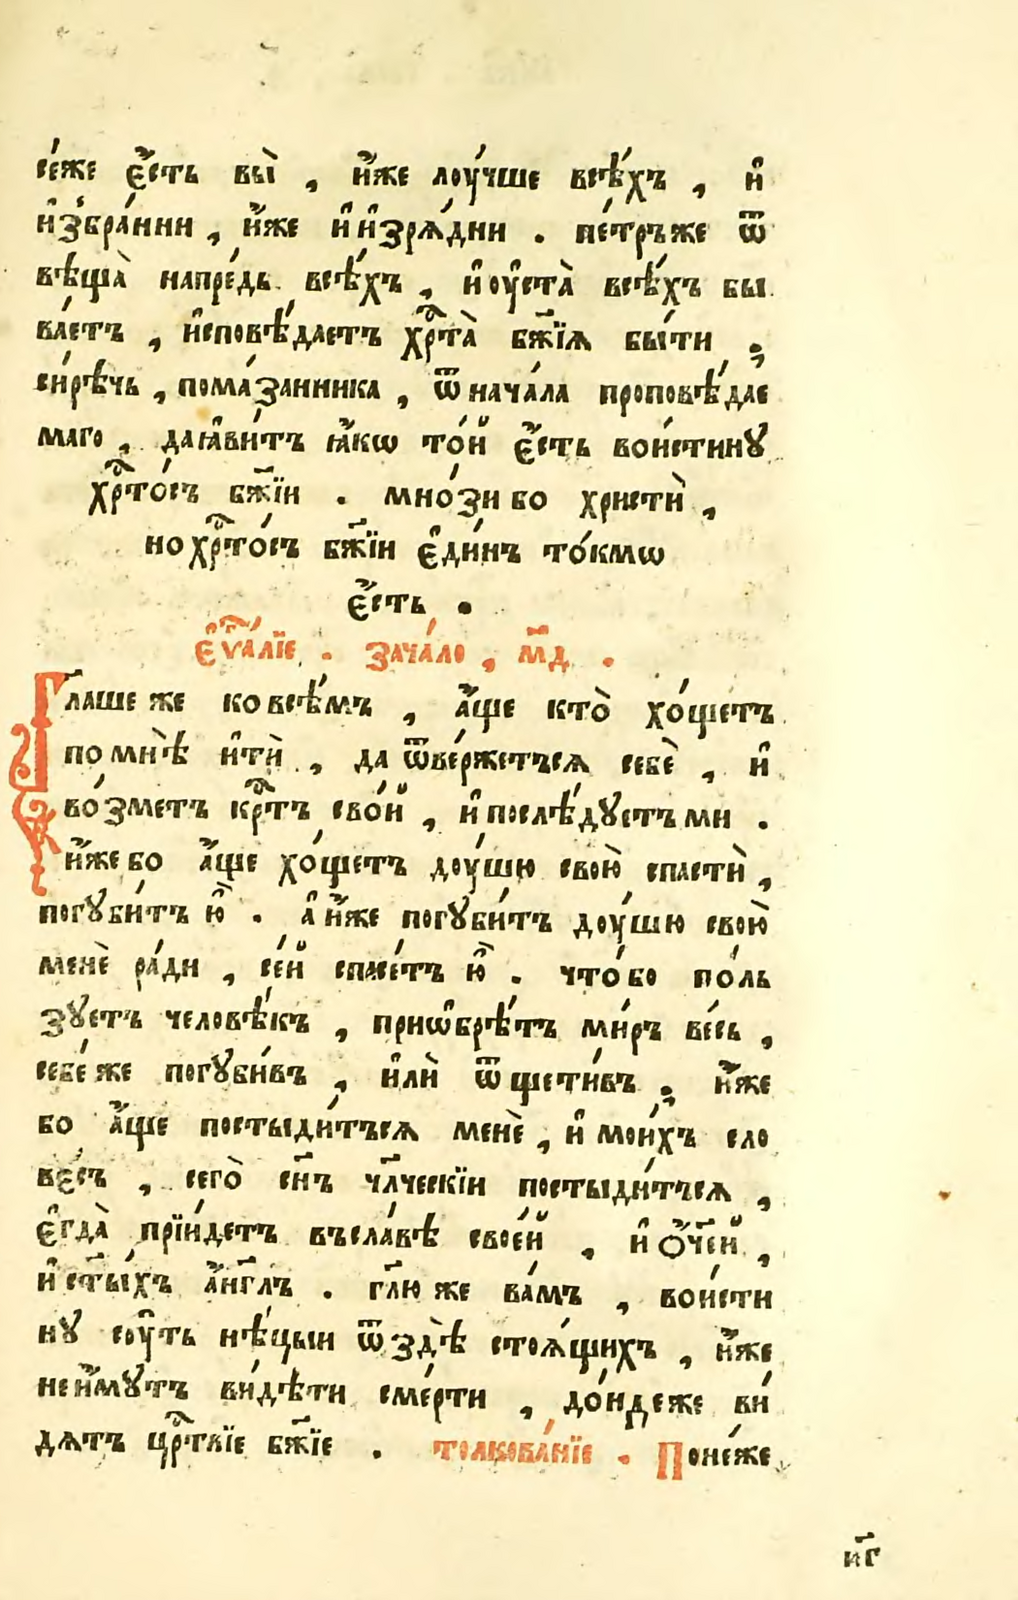 се́же є҆́сть вы̀ , и҆́же лоу́чше всѣ́хъ , и҆
и҆збра́нни , и҆́же и҆ и҆зрѧ́дни . пе́тръже ѿ
вѣща̀ напре́дь всѣ́хъ , и҆ оу҆ста̀ всѣ́хъ бы
ва́етъ , и҆сповѣ́даетъ хрⷭ҇та̀ бж҃їѧ бы́ти ,
си́рѣчь , пома́занника , ѿ нача́ла проповѣ́дае
маго , даꙗ҆ви́тъ ꙗ҆́кѡ то́й є҆́сть вои́стинꙋ
хрⷭ҇то́съ бж҃їи . мно́зи бо христѝ ,
но хрⷭ҇то́съ бж҃їи є҆ди́нъ то́кмѡ
є҆́сть .
є҆ѵⷢ҇а́лїе . зача́ло , л҃д .
Гл҃аше же ко всѣ́мъ , а҆́ще кто̀ хо́щетъ
по мнѣ̀ и҆тѝ , да ѿве́ржетъсѧ себѐ , и҆
во́зметъ крⷭ҇тъ сво́й , и҆ послѣ́дꙋетъ ми .
и҆́же бо а҆́ще хо́щетъ доу́шю свою̀ спастѝ ,
погꙋби́тъ ю҆̀ . а҆ и҆́же погꙋби́тъ доу́шю свою̀
менѐ ра́ди , се́й спасе́тъ ю҆̀ . что́ бо по́ль
зꙋетъ человѣ́къ , приѡ҆брѣ́тъ ми́ръ ве́сь ,
себе́ же погꙋби́въ , и҆лѝ ѿщети́въ , и҆́же
бо а҆́ще постыди́тъсѧ менѐ , и҆ мои́хъ сло
ве́съ , сего̀ сн҃ъ чл҃ческїи постыди́тъсѧ ,
є҆гда̀ прїи́детъ въсла́вѣ свое́й , и҆ ѻ҆́ч҃ей ,
и҆ ст҃ы́хъ а҆́нг҃лъ . гл҃ю же ва́мъ , вои́сти
нꙋ соу҆́ть нѣ́цыи ѿ здѣ̀ стоѧ́щихъ , и҆́же
не и҆́мꙋтъ ви́дѣти сме́рти , до́ндеже ви́
дѧтъ црⷭ҇твїе бж҃їе . толкова́нїе . Поне́же
н҃г